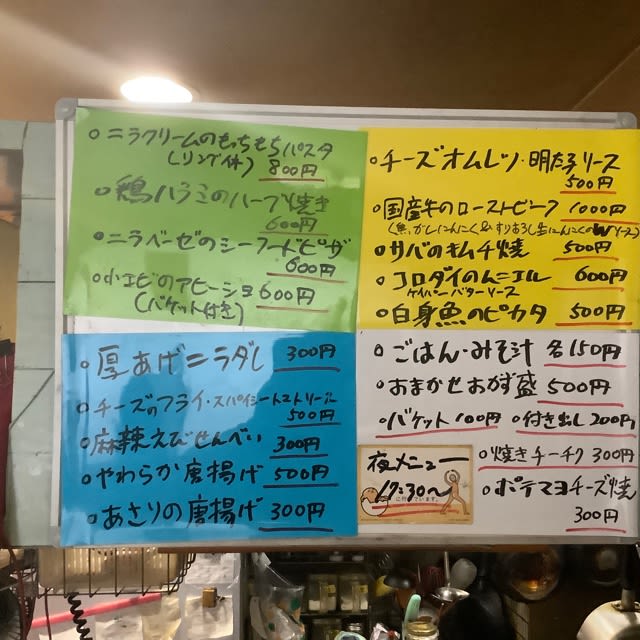 ニラクリームのもっちもちパスタ
(リングイネ) 800円
鶏ハラミのハーブ焼き
600円
ニラベーゼのシーフードピザ
600円
小エビのアヒージョ 600円
(バケット付き)
チーズオムレツ・明太ソース
500円
国産牛のローストビーフ 1000円
サバのキムチ焼 500円
コロダイのムニエル 600円
ケイパーバターソース
白身魚のピカタ 500円
厚あげニラダレ 300円
チーズのフライ・スパイシートマトソース
500円
麻辣えびせんべい 300円
やわらか唐揚げ 500円
あさりの唐揚げ 300円
ごはん・みそ汁 各150円
おまかせおかず盛 500円
バケット 100円 付き出し 200円
夜メニュー
17:30〜
焼きチーチク 300円
ポテマヨチーズ焼
300円